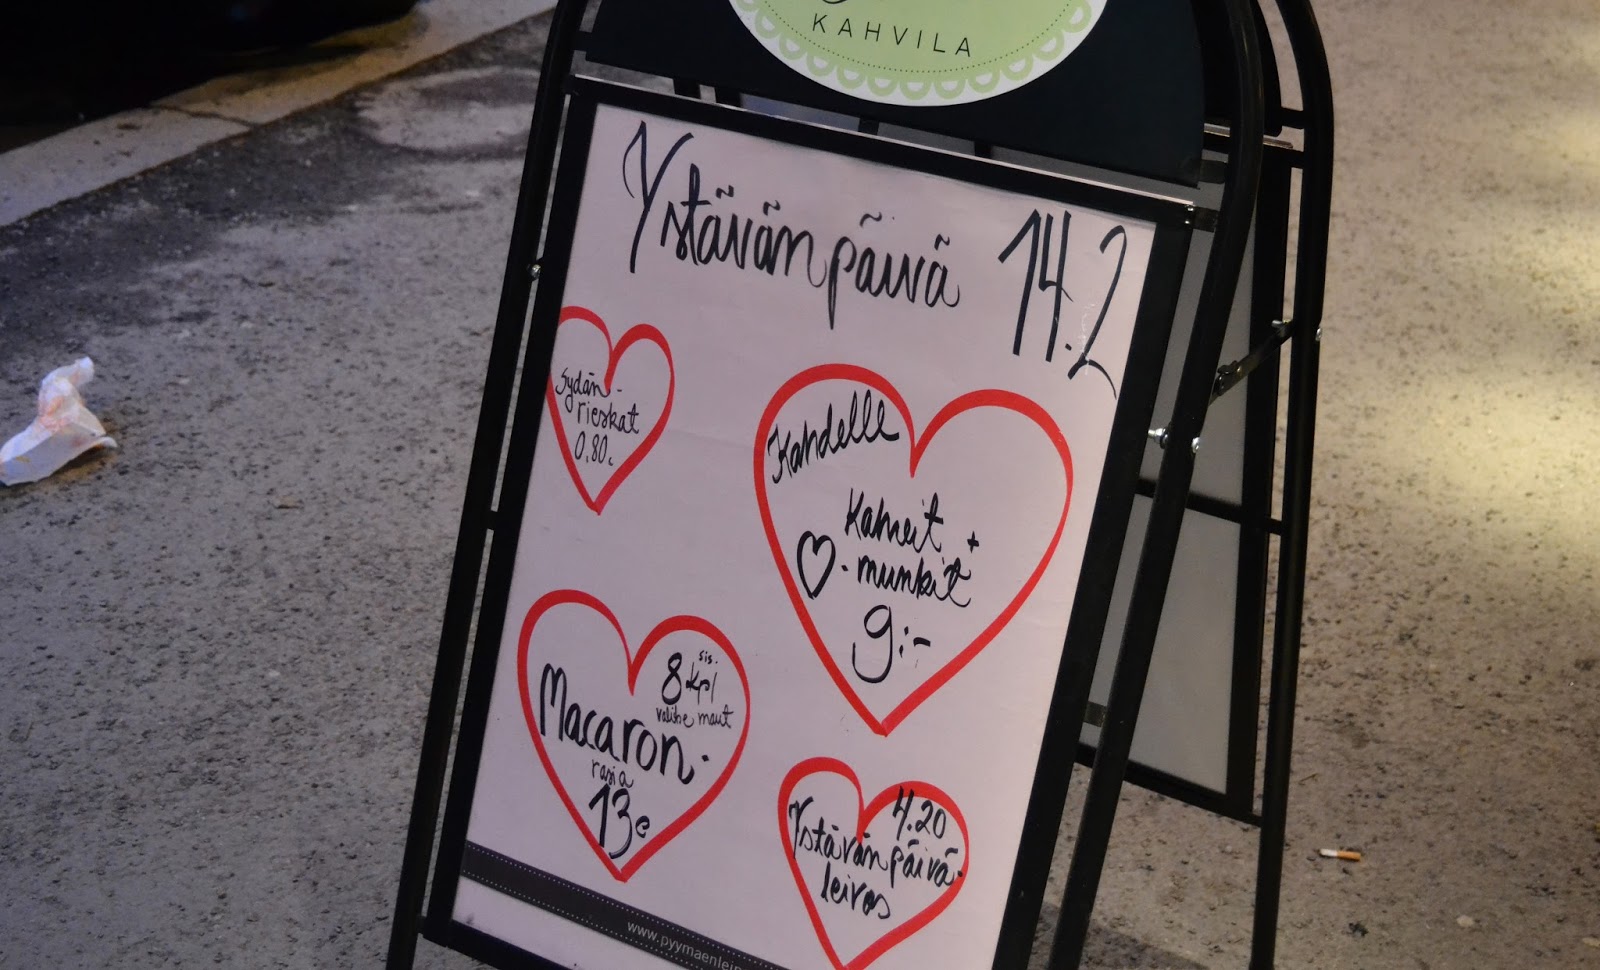 KAHVILA
Ystävänpäivä 14.2
Sydän-
rieskat
0,80
Kahdelle
Kahvit +
munkit
9:-
8 kpl sis.
valitse maut
Macaron-
rasia
13e
4.20
Ystävänpäivä-
leivos
www.pyymaenlei